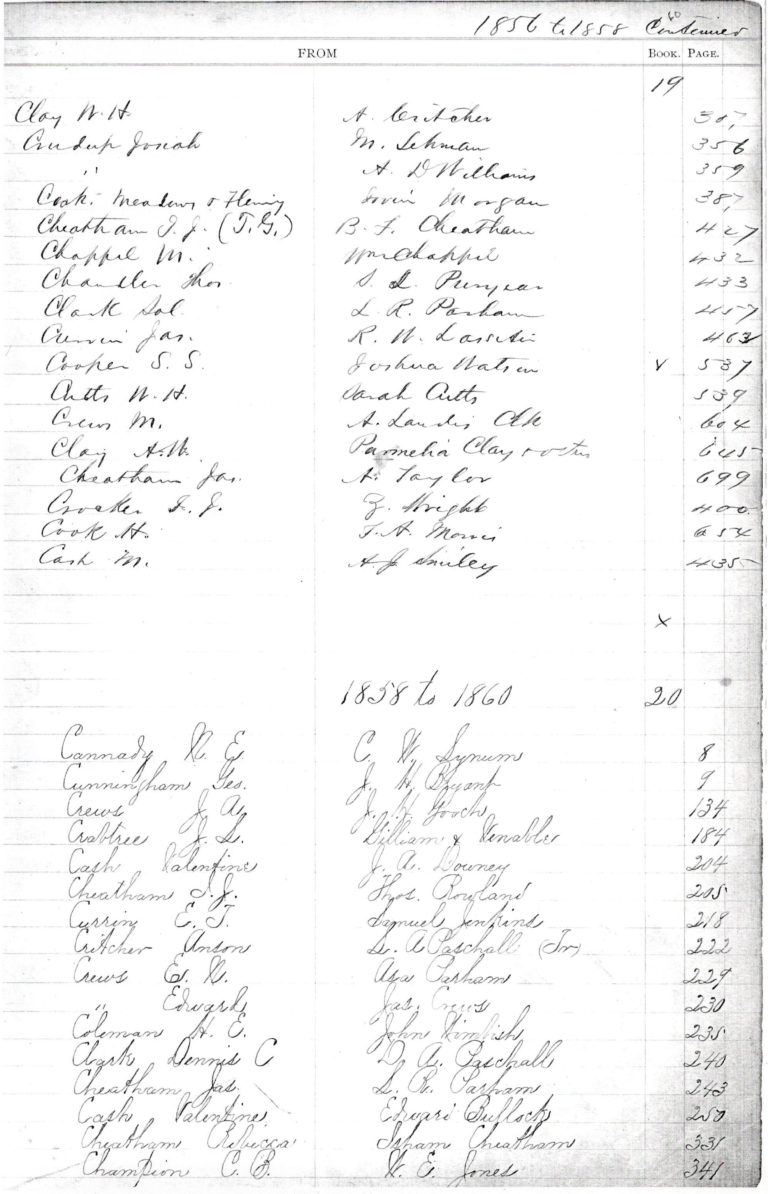 1856 to 1858 Continued
FROM BOOK. PAGE.
19
Clay W. H. A. Critcher 307
Crudup Josiah M. Lehman 356
" A. D Williams 359
Cook, Meadows & Flemg Morgan 387
Cheatham T. J. (T. G.) B. F. Cheatham 427
Chappel M. Wm Chappel 432
Chandler Thos. S. Puryear 433
Clark Sol. L. R. Parham 457
Currin Jas. R. W. Lassiter 463
Cooper S. S. Joshua Watson v 537
Cutts W. H. Sarah Cutts 539
Crews M. A. Landis Clk 604
Clay A. W. Parmelia Clay & 645
Cheatham Jas. A. Taylor 699
Crocker Z. Wright 400
Cook H. T. A. Morris 654
Cash M. A. J. Smiley 435
x
1858 to 1860 20
Cannady N. E. C. W. Synum 8
Cunningham Geo. J. H. Bryant 9
Crews J. A. J. H. Gooch 134
Crabtree J. S. Gilliam & Venable 184
Cash Valentine J. A. Downey 204
Cheatham T. J. Thos. Rowland 205
Currin E. T. Samuel Jenkins 218
Critcher Anson L. A Paschall (Tr) 222
Crews E. N. Asa Parham 229
" Edward Jas. Crews 230
Coleman H. E. John Wimbish 235
Clark Dennis C D. A. Paschall 240
Cheatham Jas. L. R. Parham 243
Cash Valentine Edward Bullock 250
Cheatham Rebecca Isham Cheatham 331
Champion C. B. W. E. Jones 341